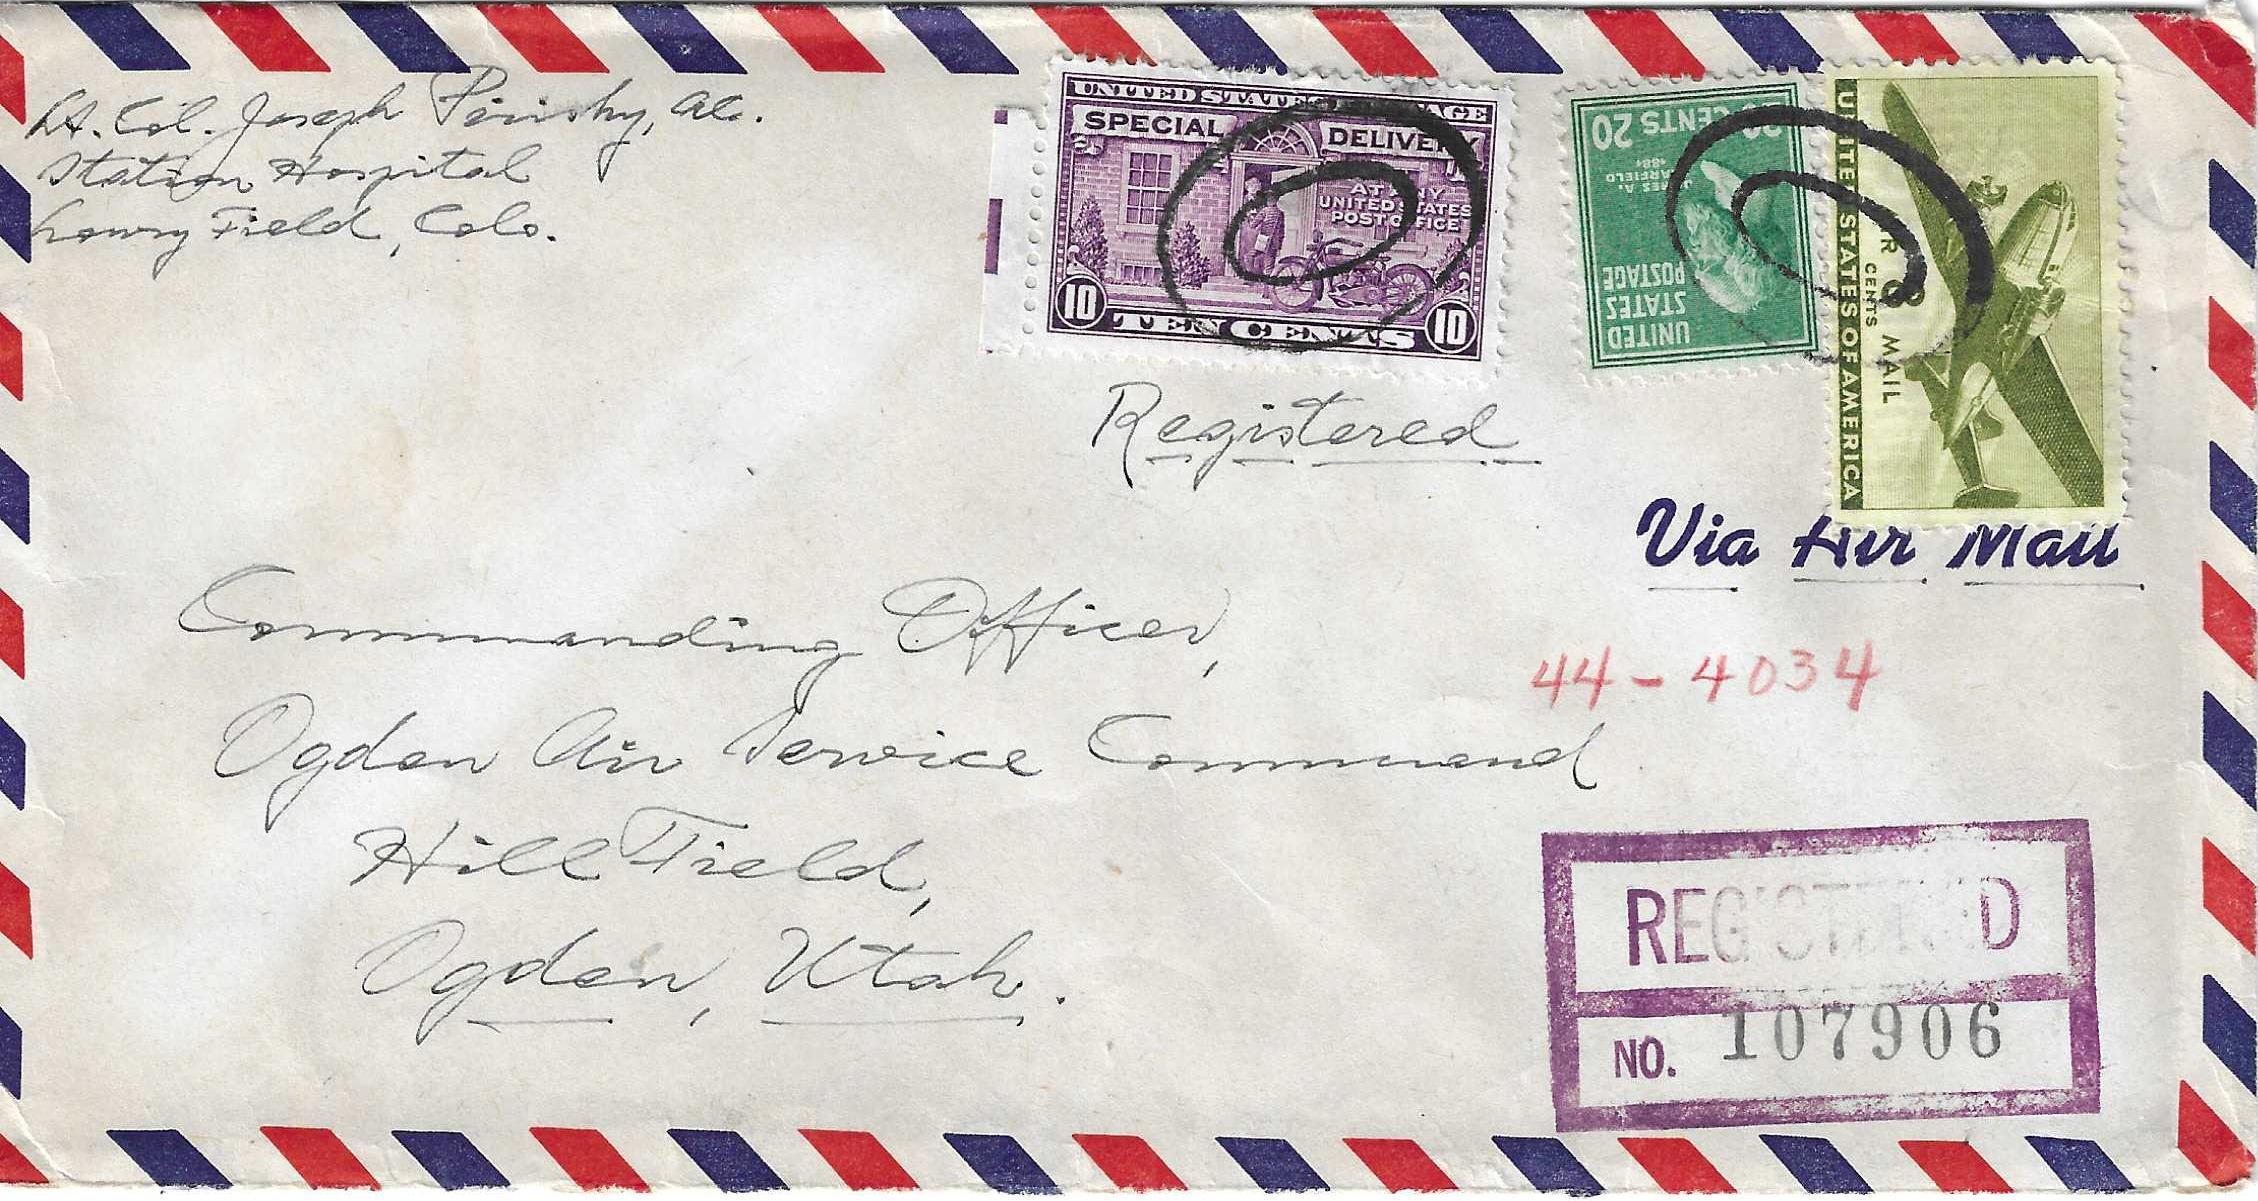 Lt. Col. Joseph Pirishy, Mc.
Station Hospital
Lowry Field, Colo.
UNITED STATES POSTAGE
SPECIAL DELIVERY
AT ANY
UNITED STATES
POST OFFICE
10 TEN CENTS 10
20 CENTS 20
JAMES A.
GARFIELD
1881
UNITED
STATES
POSTAGE
UNITED STATES OF AMERICA
AIR MAIL
8
CENTS
Registered
Via Air Mail
Commanding Officer,
44-4034
Ogden Air Service Command
Hill Field,
Ogden, Utah.
REGISTERED
NO. 107906